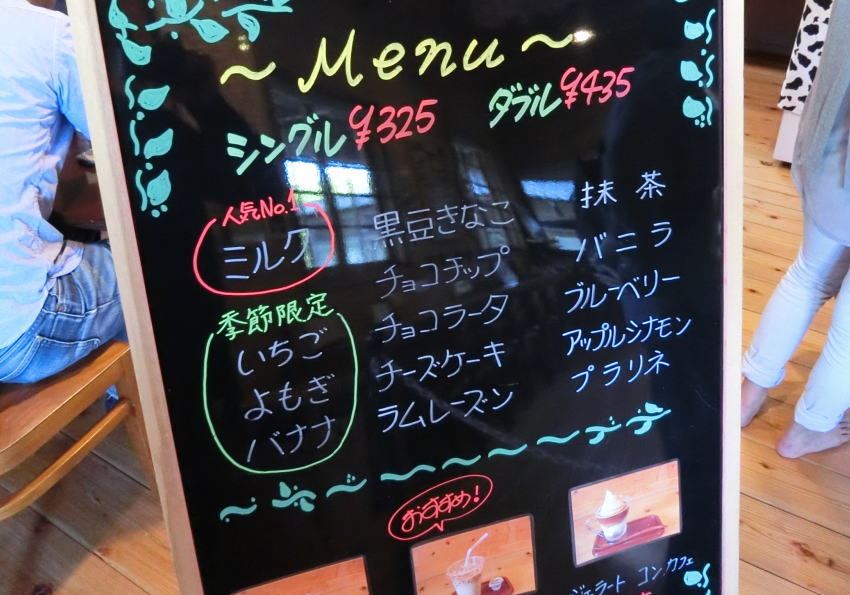 ～Menu～
シングル ¥325
ダブル ¥435
人気No.1
ミルク
季節限定
いちご
よもぎ
バナナ
黒豆きなこ
チョコチップ
チョコラータ
チーズケーキ
ラムレーズン
抹茶
バニラ
ブルーベリー
アップルシナモン
プラリネ
おすすめ!
ジェラート コン カフェ